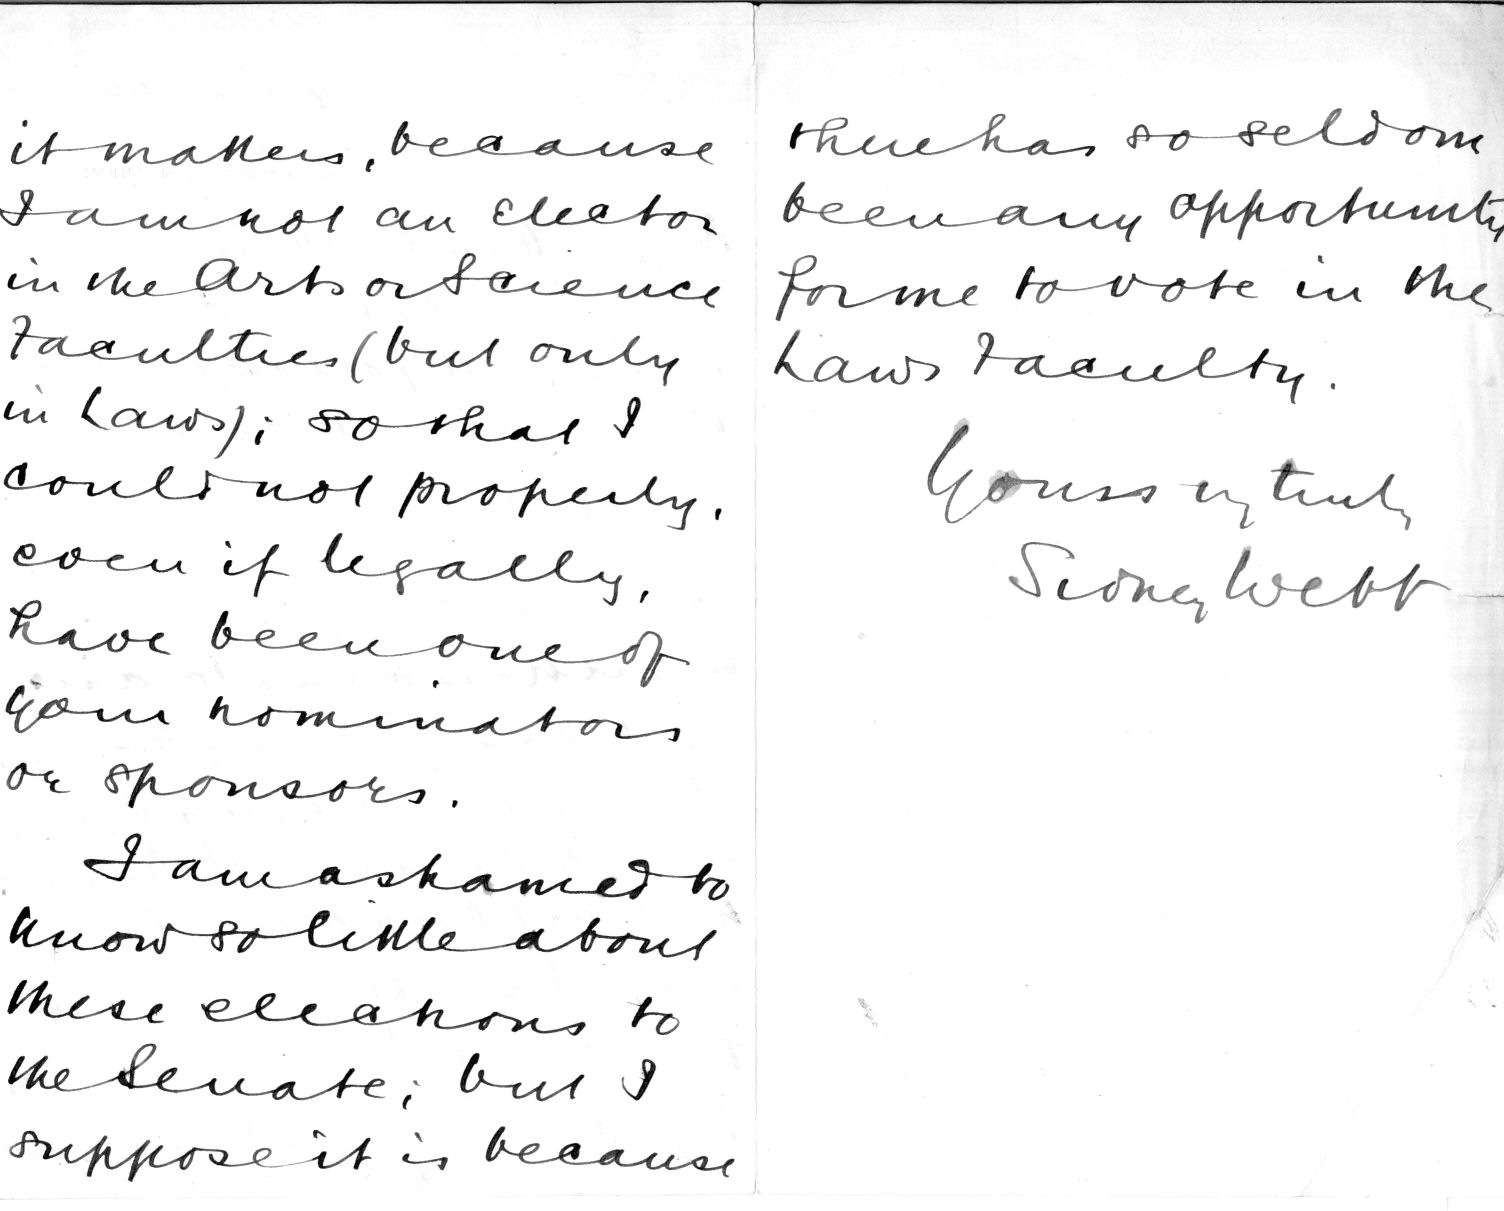 it matters, because
I am not an elector
in the Arts or Science
Faculties (but only
in Laws); so that I
could not properly,
even if legally,
have been one of
your nominators
or sponsors.
I am ashamed to
know so little about
these elections to
the Senate; but I
suppose it is because
there has so seldom
been any opportunity
for me to vote in the
Laws Faculty.
Yours vy truly
Sidney Webb